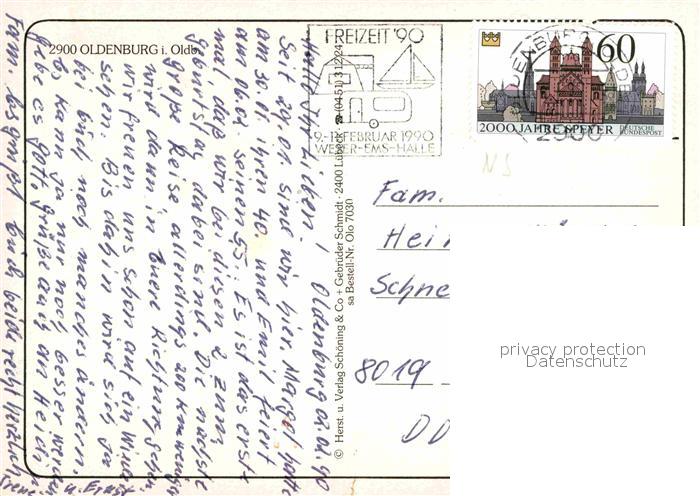 2900 OLDENBURG i. Oldb.
FREIZEIT '90
9.-11. FEBRUAR 1990
WESER-EMS-HALLE
60
2000 JAHRE SPEYER DEUTSCHE BUNDESPOST
2900
© Herst. u. Verlag Schöning & Co + Gebrüder Schmidt · 2400 Lübeck ☎ (04 51) 3 12 24
sa Bestell-Nr. Olo 7030
NS
Fam.
Hei
Schne
8019
DD
privacy protection
Datenschutz
Hallo Ihr Lieben! Oldenburg 02.02.90
Seit 29.01 sind wir hier. Margot hatte
am 30.01 ihren 40. und Emil feiert
am 06.02 seinen 55. Es ist das erste
mal, daß wir bei diesen 2 zum
Geburtstag dabei sind. Die nächste
große Reise allerdings
wird dann in Eure Richtung gehen.
wir freuen uns schon auf ein Wieder-
sehen. Bis dahin wird sich ja
bei und noch manches ändern.
Es kann ja nur noch besser werden
gebe es Gott. Grüße auch an Heidi
Fam. Es grüßt Euch beide recht herzl.
Irene u. Ernst.